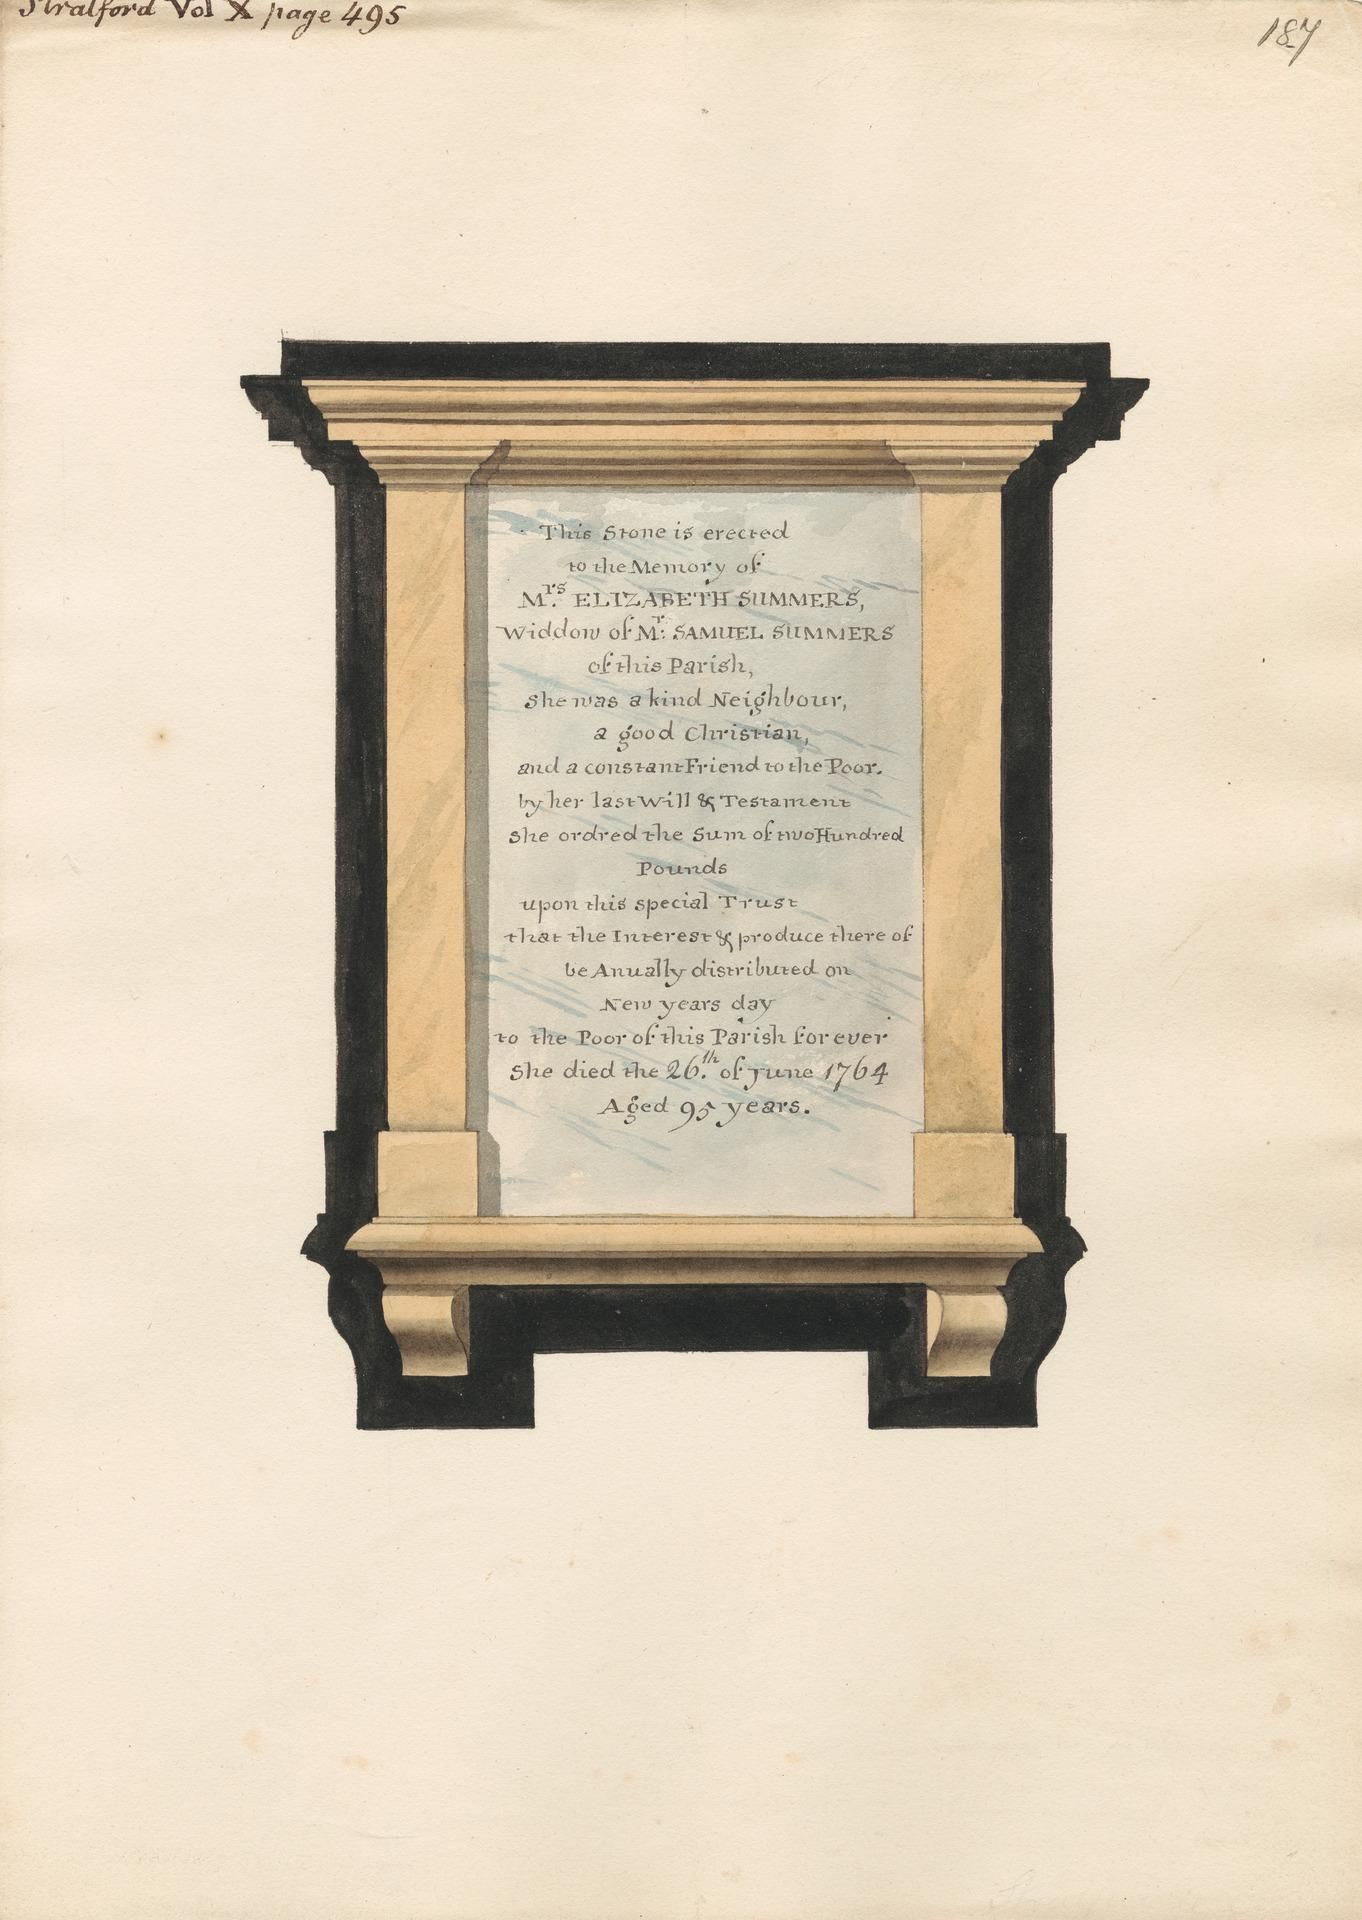 Stratford Vol X page 495
187
This Stone is erected
to the Memory of
Mrs. ELIZABETH SUMMERS,
Widdow of Mr: SAMUEL SUMMERS
of this Parish,
She was a kind Neighbour,
a good Christian,
and a constant Friend to the Poor.
by her last Will & Testament
she ordred the Sum of two Hundred
Pounds
upon this special Trust
that the Interest & produce there of
be Anually distributed on
New years day
to the Poor of this Parish for ever
She died the 26.th of June 1764
Aged 95 years.